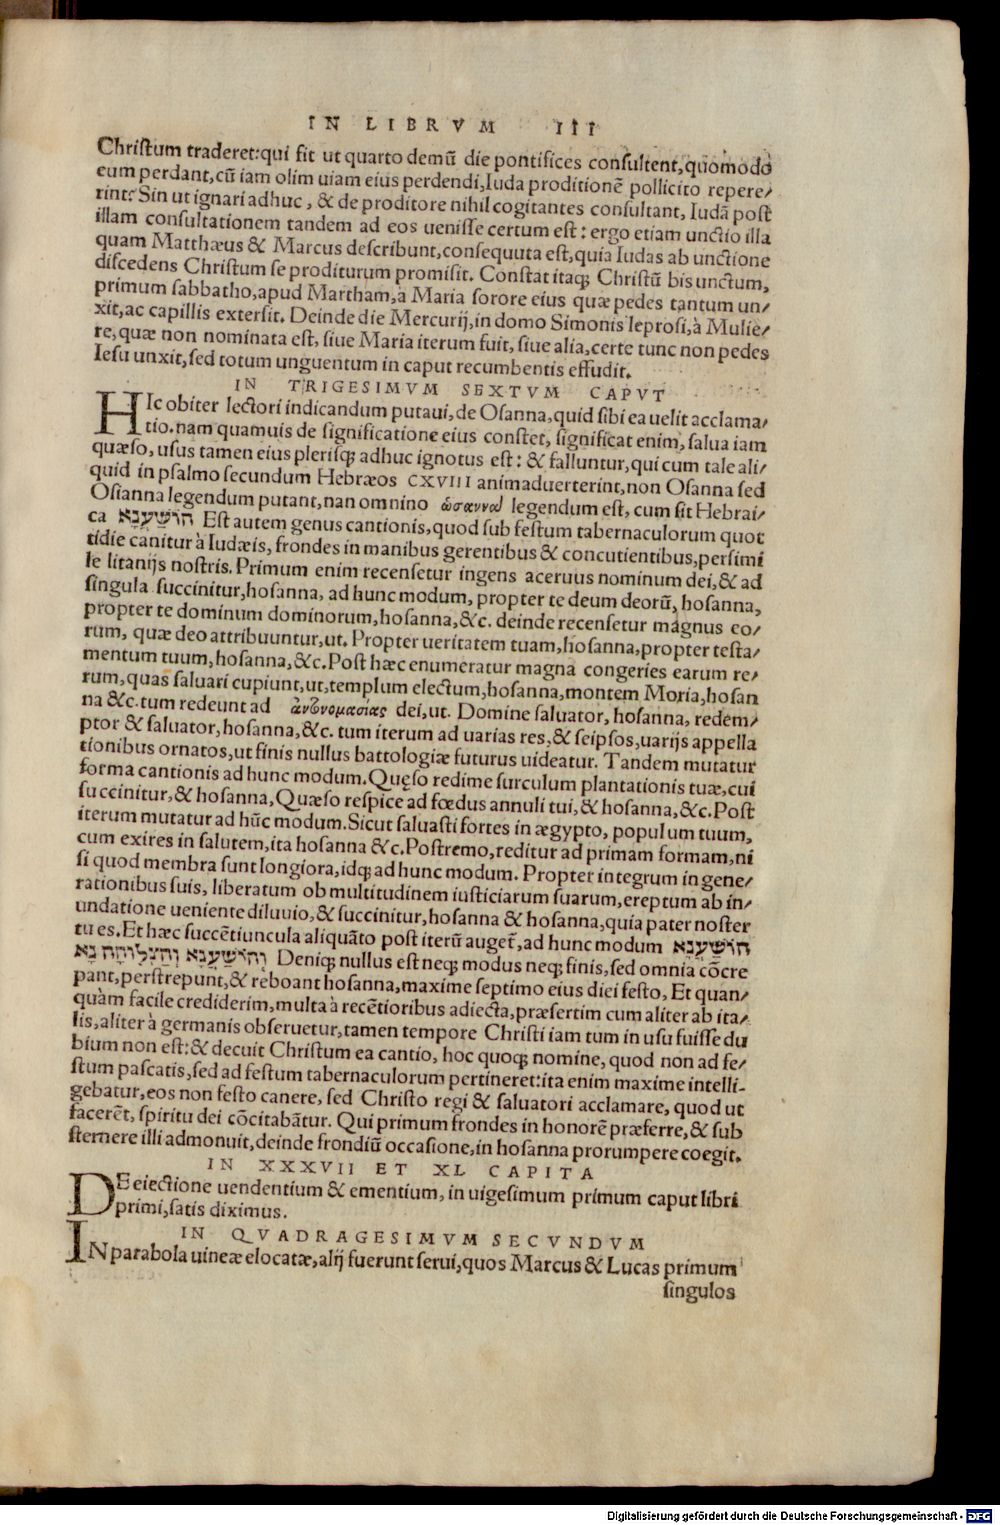 IN LIBRVM III
Chriſtum traderet:qui fit ut quarto demũ die pontifices conſultent,quomodo
eum perdant,cũ iam olim uiam eius perdendi,Iuda proditionẽ pollicito repere⸗
rint? Sin ut ignari adhuc, & de proditore nihil cogitantes conſultant, Iudã poſt
illam conſultationem tandem ad eos ueniſſe certum eſt: ergo etiam unctio illa
quam Matthæus & Marcus deſcribunt,conſequuta eſt,quia Iudas ab unctione
diſcedens Chriſtum ſe proditurum promiſit. Conſtat itaq; Chriſtũ bis unctum,
primum ſabbatho,apud Martham,à Maria ſorore eius quæ pedes tantum un⸗
xit,ac capillis exterſit. Deinde die Mercurij,in domo Simonis leproſi,à Mulie⸗
re,quæ non nominata eſt, ſiue Maria iterum fuit, ſiue alia,certe tunc non pedes
Ieſu unxit,ſed totum unguentum in caput recumbentis effudit.
IN TRIGESIMVM SEXTVM CAPVT
HIc obiter lectori indicandum putaui,de Oſanna,quid ſibi ea uelit acclama⸗
tio.nam quamuis de ſignificatione eius conſtet, ſignificat enim, ſalua iam
quæſo, uſus tamen eius pleriſq; adhuc ignotus eſt: & falluntur,qui cum tale ali⸗
quid in pſalmo ſecundum Hebræos CXVIII animaduerterint,non Oſanna ſed
Oſianna legendum putant,nan omnino ὡσαννὰ legendum eſt, cum ſit Hebrai⸗
ca הוֹשַׁעְנָא Eſt autem genus cantionis,quod ſub feſtum tabernaculorum quot
tidie canitur à Iudæis, frondes in manibus gerentibus & concutientibus,perſimi
le litanijs noſtris. Primum enim recenſetur ingens aceruus nominum dei,& ad
ſingula ſuccinitur,hoſanna, ad hunc modum, propter te deum deorũ, hoſanna,
propter te dominum dominorum,hoſanna,&c. deinde recenſetur magnus eo⸗
rum, quæ deo attribuuntur,ut. Propter ueritatem tuam,hoſanna,propter teſta⸗
mentum tuum,hoſanna,&c. Poſt hæc enumeratur magna congeries earum re⸗
rum,quas ſaluari cupiunt,ut,templum electum,hoſanna,montem Moria,hoſan
na &c.tum redeunt ad ἀντονομασίας dei,ut. Domine ſaluator, hoſanna, redem⸗
ptor & ſaluator,hoſanna,&c. tum iterum ad uarias res,& ſeipſos,uarijs appella
tionibus ornatos,ut finis nullus battologiæ futurus uideatur. Tandem mutatur
forma cantionis ad hunc modum.Quęſo redime ſurculum plantationis tuæ,cui
ſuccinitur,& hoſanna,Quæſo reſpice ad fœdus annuli tui,& hoſanna,&c.Poſt
iterum mutatur ad hũc modum.Sicut ſaluaſti fortes in ægypto, populum tuum,
cum exires in ſalutem,ita hoſanna &c.Poſtremo,reditur ad primam formam,ni
ſi quod membra ſunt longiora,idq; ad hunc modum. Propter integrum in gene⸗
rationibus ſuis, liberatum ob multitudinem iuſticiarum ſuarum,ereptum ab in⸗
undatione ueniente diluuio,& ſuccinitur,hoſanna & hoſanna,quia pater noſter
tu es.Et hæc ſuccẽtiuncula aliquãto poſt iterũ auget̃,ad hunc modum הוֹשַׁעְנָא
וְהוֹשַׁעְנָא וְהַצְלִיחָה נָא Deniq; nullus eſt neq; modus neq; finis,ſed omnia cõcre
pant,perſtrepunt,& reboant hoſanna,maxime ſeptimo eius diei feſto, Et quan⸗
quàm facile crediderim,multa à recẽtioribus adiecta,præſertim cum aliter ab ita⸗
lis,aliter à germanis obſeruetur,tamen tempore Chriſti iam tum in uſu fuiſſe du
bium non eſt:& decuit Chriſtum ea cantio, hoc quoq; nomine, quod non ad fe⸗
ſtum paſcatis,ſed ad feſtum tabernaculorum pertineret:ita enim maxime intelli-
gebatur,eos non feſto canere, ſed Chriſto regi & ſaluatori acclamare, quod ut
facerẽt, ſpiritu dei cõcitabãtur. Qui primum frondes in honorẽ præferre,& ſub
ſternere illi admonuit,deinde frondiũ occaſione,in hoſanna prorumpere coegit.
IN XXXVII ET XL CAPITA
DE eiectione uendentium & ementium, in uigeſimum primum caput libri
primi,ſatis diximus.
IN QVADRAGESIMVM SECVNDVM
IN parabola uineæ elocatæ,alij fuerunt ſerui,quos Marcus & Lucas primum
ſingulos
Digitalisierung gefördert durch die Deutsche Forschungsgemeinschaft - DFG